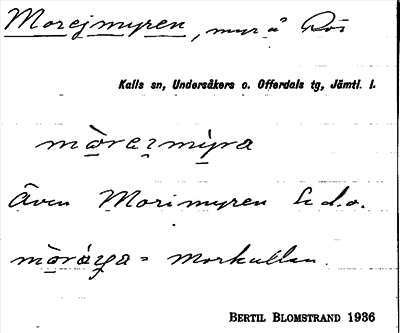 Morejmyren, myr å Rör
Kalls sn, Undersåkers o. Offerdals tg, Jämtl. l.
mòrezmỳra
Även Morimyren
mòrárja = morkullan.
BERTIL BLOMSTRAND 1936